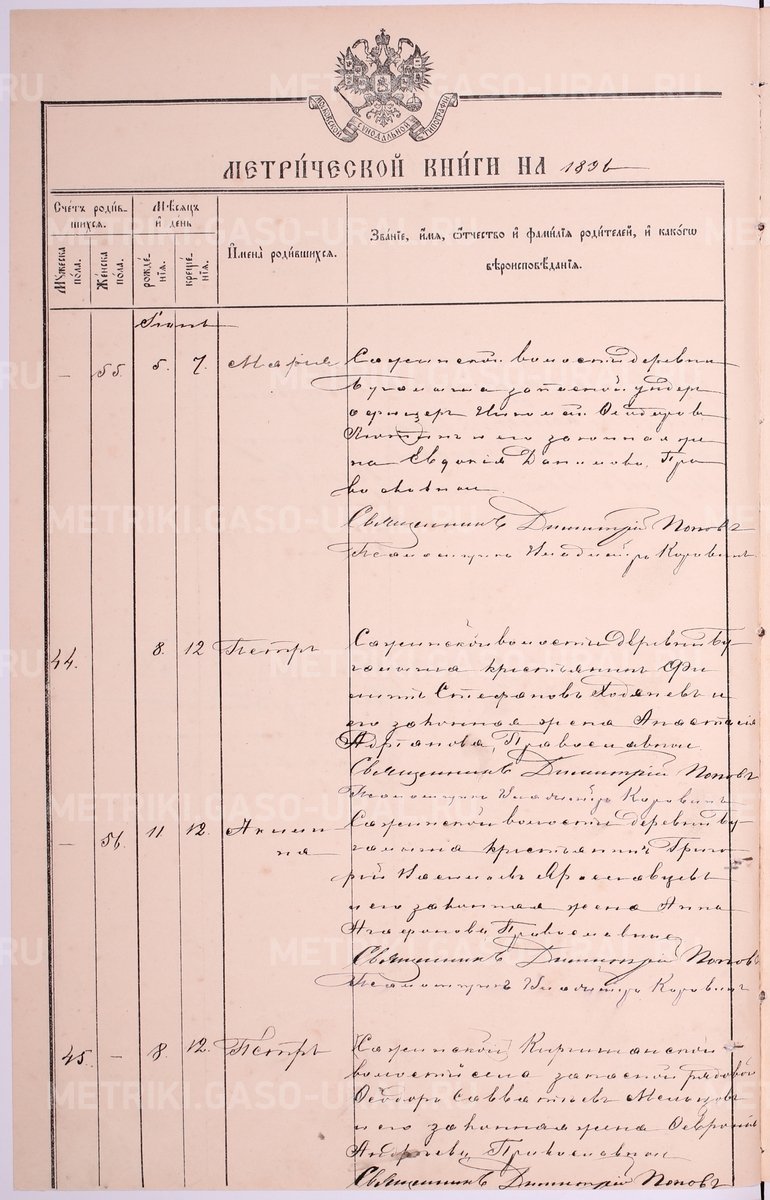 МОСКОВСКОЙ СѴНОДАЛЬНОЙ ТИПОГРАФІИ
МЕТРИ́ЧЕСКОЙ КНИ́ГИ НА 1896
Сче́тъ роди́вшихся.
Мꙋ́жеска по́ла.
Же́нска по́ла.
Мѣ́сяцъ и҆ де́нь
рожде́нїѧ.
креще́нїѧ.
И҆мена̀ роди́вшихся.
Зва́нїе, и҆́мѧ, ѻ҆́тчество и҆ фамилїѧ роди́телей, и҆ како́гѡ
вѣроисповѣ́данїѧ.
Іюнь
— 55. 5. 7. Марія Сажинской волости деревни
Бугалыша запасной унтер
офицеръ Николай
и его законная же
на Евдокія Данилова, Пра
вославные
Священникъ Димитрій Поповъ
Псаломщикъ Владиміръ Коровинъ
44. 8. 12 Петръ Сажинской волости деревни Бу
галыша крестьянинъ Фи
липпъ Стефановъ и
его законная жена Анастасія
Адріанова, Православные
Священникъ Димитрій Поповъ
Псаломщикъ Владиміръ Коровинъ
— 56. 11 12. Акили
на
Сажинской волости деревни Бу
галыша крестьянинъ Григо
рій Ярославцевъ
и его законная жена Анна
Агафонова, Православные
Священникъ Димитрій Поповъ
Псаломщикъ Владиміръ Коровинъ
45 — 8. 12. Петръ Сажинской
волости села запасной рядовой
Ѳеодоръ Савватіевъ Мельцовъ
и его законная жена Февронія
Андреева Православные
Священникъ Димитрій Поповъ
METRIKI.GASO-URAL.RU